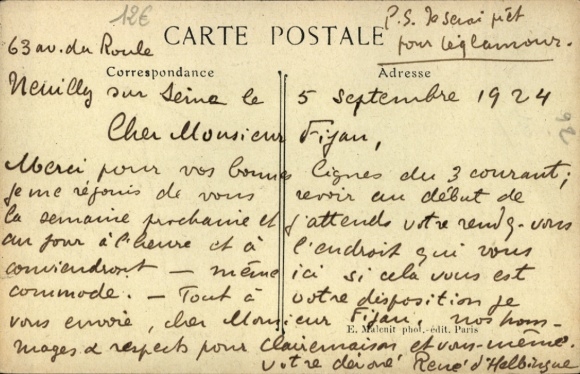 12€
P.S. Je serai prêt
pour l'église amour.
63 av. du Roule
CARTE POSTALE
Correspondance
Adresse
Neuilly sur Seine le 5 septembre 1924
Cher Monsieur Fijan,
Merci pour vos bonnes lignes du 3 courant;
je me réjouis de vous revoir au début de
la semaine prochaine et j'attends votre rendez-vous
au jour à l'heure et à l'endroit qui vous
conviendront — même ici si cela vous est
commode. — Tout à votre disposition je
E. Malcuit phot.-édit. Paris
vous envoie, cher Monsieur Fijan, nos hom-
mages & respects pour Clairemaison et vous-même.
Votre dévoué René d'Helbingue